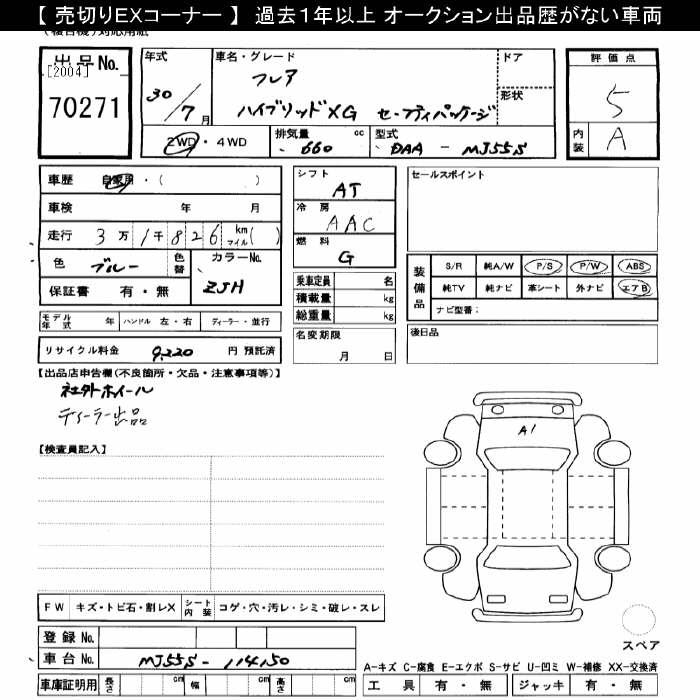 【 売切りEXコーナー 】 過去1年以上 オークション出品歴がない車両
出品No.
[2004]
70271
年式
30/7月
車名・グレード
フレア
ハイブリッドXG セーフティパッケージ
ドア
形状
評価点
5
内装
A
2WD・4WD
排気量 cc
660
型式
DAA - MJ55S
車歴 自家用・( )
車検 年 月
走行 3万1千826 km マイル( )
色 ブルー 色替
カラーNo.
ZJH
保証書 有・無
モデル年式 年 ハンドル 左・右 ディーラー・並行
リサイクル料金 9,220 円 預託済
シフト
AT
冷房
AAC
燃料
G
乗車定員 名
積載量 kg
総重量 kg
名変期限
月 日
セールスポイント
装備品
S/R 純A/W P/S P/W ABS
純TV 純ナビ 革シート 外ナビ エアB
ナビ型番:
後日品
【出品店申告欄(不良箇所・欠品・注意事項等)】
社外ホイール
ディーラー出品
【検査員記入】
A1
FW キズ・トビ石・割レX シート内装 コゲ・穴・汚レ・シミ・破レ・スレ
登録No.
車台No. MJ55S-114150
車庫証明用 長さ cm 幅 cm 高さ cm
スペア
A-キズ C-腐食 E-エクボ S-サビ U-凹ミ W-補修 XX-交換済
工具 有・無 ジャッキ 有・無